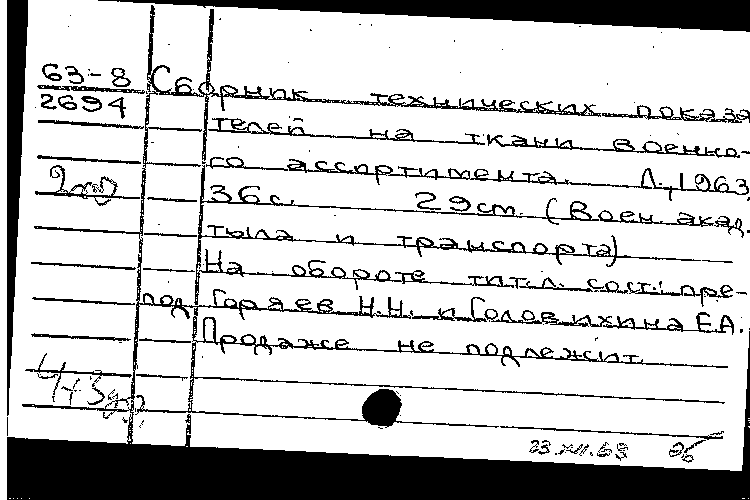 63-8 Сборник технических показа
2694 телей на ткани военно-
го ассортимента. Л., 1963,
36 с. 29 см. (Воен. акад.
тыла и транспорта)
На обороте тит. л. сост.: пре-
под. Горяев Н.Н. и Головихина Е.А.
Продаже не подлежит.
23.XII.63